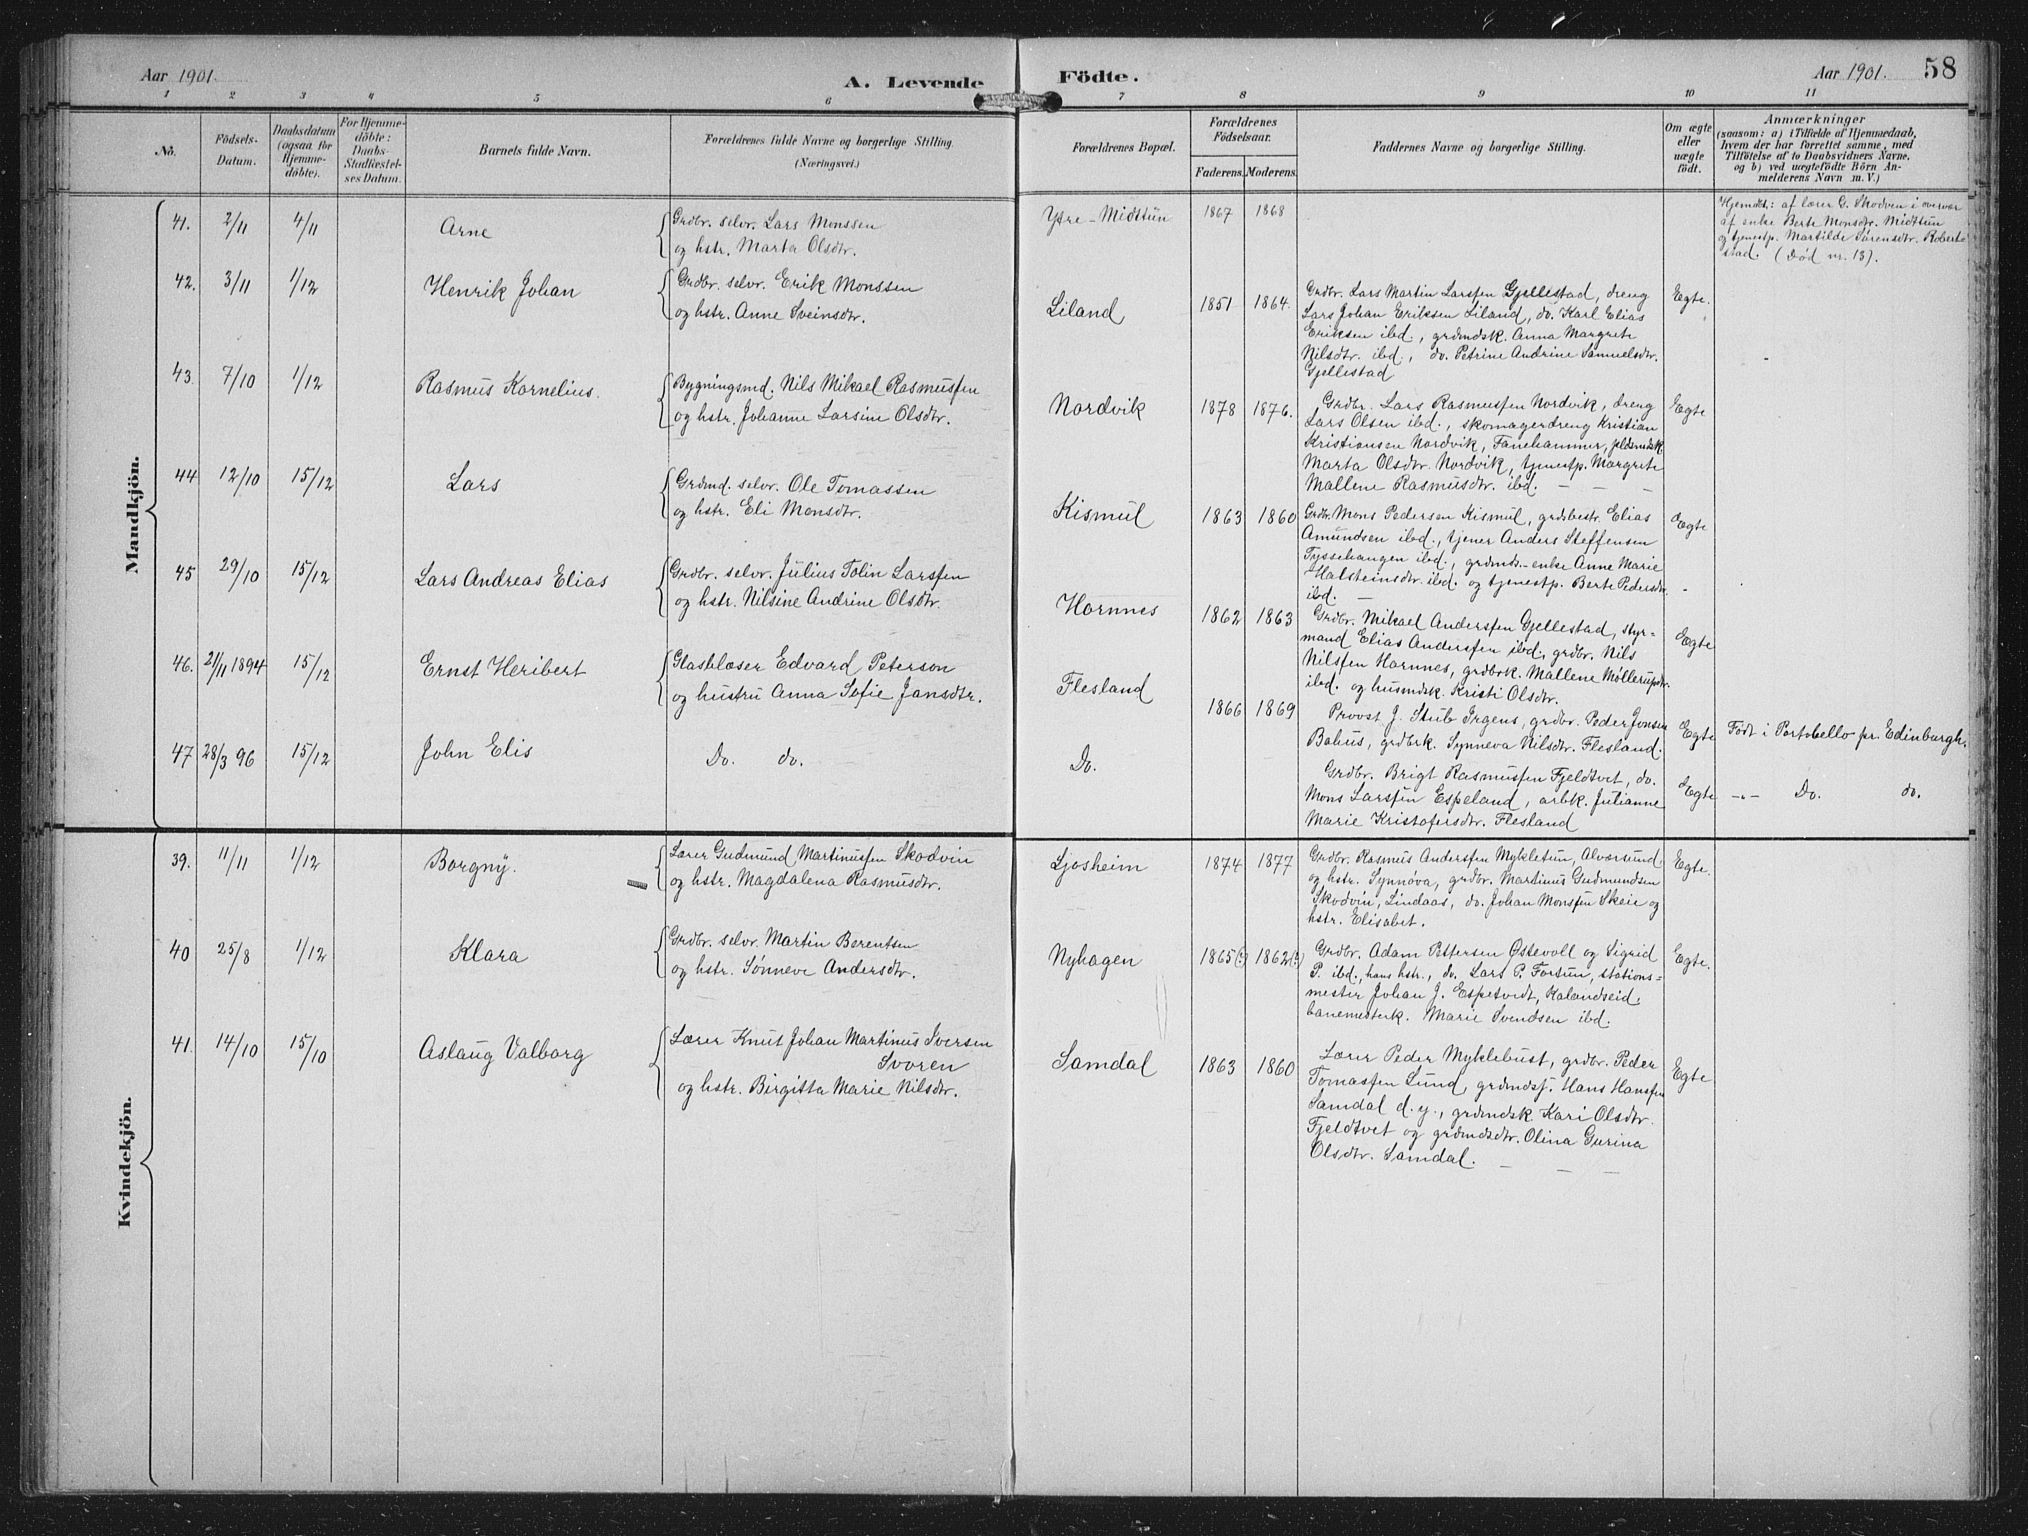 Aar 1901.
A. Levende
Födte.
Aar 1901.
58
1 2 3 4 5 6 7 8 9 10 11
No.
Födsels-
Datum.
Daabsdatum
(ogsaa for
Hjemme-
döbte).
For Hjemme-
döbte:
Daabs-
Stadfæstel-
ses Datum.
Barnets fulde Navn.
Forældrenes fulde Navne og borgerlige Stilling.
(Næringsvei.)
Forældrenes Bopæl.
Forældrenes
Födselsaar.
Faderens. Moderens.
Faddernes Navne og borgerlige Stilling.
Om ægte
eller
uægte
födt.
Anmærkninger
(saasom: a) i Tilfælde af Hjemmedaab,
hvem der har forrettet samme, med
Tilföielse af to Daabsvidners Navne,
og b) ved uægtefödte Börn An-
melderens Navn m. V.)
Mandkjön.
41. 2/11 4/11 Arne
Grdbr. selv. Lars Monssen
og hstr. Marta Olsdtr.
Ytre-Midttun 1867 1868
Hjemdbt: af lærer G. Skodven i overvær
af enke Berte Monsdtr. Midttun
og tjenestp. Martilde Sørensdtr. Roberts-
stad. (Død nr. 13).
42. 3/11 1/12 Henrik Johan
Grdbr. selv. Erik Monssen
og hstr. Anne Sveinsdtr.
Liland 1851 1864.
Grdbr. Lars Martin Larsfen Gjellestad, dreng
Lars Johan Eriksen Liland, do. Karl Elias
Eriksen ibd., grdmdsk. Anna Margrete
Nilsdtr. ibd., do. Petrine Andrine Samuelsdtr.
Gjellestad
Egte.
43. 7/10 1/12 Rasmus Kornelius.
Bygningsmd. Nils Mikael Rasmusfen
og hstr. Johanne Larsine Olsdtr.
Nordvik 1878 1876.
Grdbr. Lars Rasmusfen Nordvik, dreng
Lars Olsen ibd., skomagerdreng Kristian
Kristiansen Nordvik, Fanehammer,
Marta Olsdtr. Nordvik, tjenestp. Margrete
Mallene Rasmusdtr. ibd. — — —
Egte
44 12/10 15/12 Lars
Grdmd. selv. Ole Tomassen
og hstr. Eli Monsdtr.
Kismul 1863 1860
Grdbr. Mons Pedersen Kismul, grdsbestr. Elias
Amundsen ibd., tjener Anders Steffensen
Tyssehangen ibd., grdmds-enke Anne Marie
Halsteinsdtr. ibd. og tjenestp. Berte Pedersdtr.
ibd. —
Egte
45 29/10 15/12 Lars Andreas Elias
Grdbr. selv. Julius Tolin Larsfen
og hstr. Nilsine Andrine Olsdtr.
Hornnes 1862 1863
Grdbr. Mikael Andersfen Gjellestad, styr-
mand Elias Andersfen ibd., grdbr. Nils
Nilsfen Hornnes, grdbrk. Mallene Møllerupdtr.
ibd. og husmdsk. Kristi Olsdtr.
Egte
46. 21/11 1894 15/12 Ernst Heribert
Glasblæser Edvard Peterson
og hustru Anna Sofie Jansdtr.
Flesland 1866 1869
Provst J. Stub Irgens, grdbr. Peder Jonsen
Bahus, grdbrk. Synneva Nilsdtr. Flesland.
Egte Født i Portobello pr. Edinburgh.
47 28/3 96 15/12 John Elis
Do. do.
Do.
Grdbr. Brigt Rasmusfen Fjeldtvet, do.
Mons Larsfen Espeland, arbk. Julianne
Marie Kristofersdtr. Flesland
Egte —"— Do. do.
Kvindekjön.
39. 11/11 1/12 Borgny.
Lærer Gudmund Martinusfen Skodvin
og hstr. Magdalena Rasmusdtr.
Ljosheim 1874 1877
Grdbr. Rasmus Andersfen Mykletun, Alversund
og hstr. Synnøva, grdbr. Martinus Gudmundsen
Skodvin, Lindaas, do. Johan Monsfen Skeie og
hstr. Elisabet.
Egte.
40 25/8 1/12 Klara
Grdbr. selv. Martin Berentsen
og hstr. Sønneve Andersdtr.
Nyhagen 1865(?) 1862(?)
Grdbr. Adam Pettersen Østevoll og Sigrid
P. ibd., hans hstr., do. Lars P. Forsun, stations-
mester Johan J. Espetvedt, Kalandseid,
banemesterk. Marie Svendsen ibd.
Egte.
41. 14/10 15/10 Aslaug Valborg
Lærer Knut Johan Martinus Iversen
Svoren
og hstr. Birgitta Marie Nilsdtr.
Samdal 1863 1860
Lærer Peder Myklebust, grdbr. Peder
Tomasfen Lund, grdmdsf. Hans Hansfen
Samdal d.y., grdmdsk Kari Olsdtr.
Fjeldtvet og grdmdsdtr. Olina Gurina
Olsdtr. Samdal. — — —
Egte